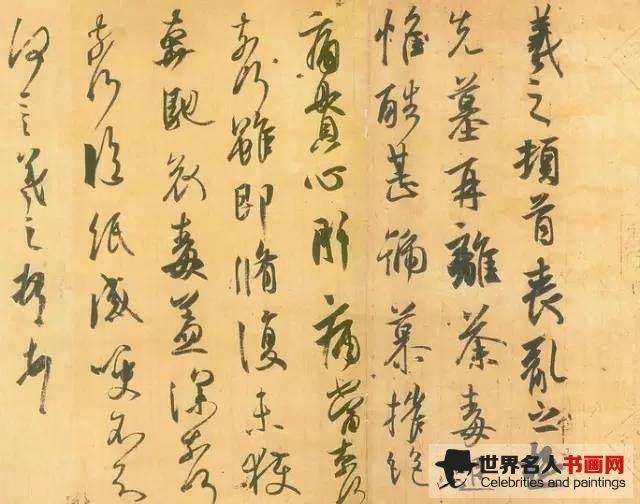 羲之頓首喪亂之極
先墓再離荼毒追
惟酷甚號慕摧絕
痛貫心肝痛當奈何
奈何雖即脩復未獲
奔馳哀毒益深奈何
奈何臨紙感哽不知
何言羲之頓首
世界名人书画网
Celebrities and paintings